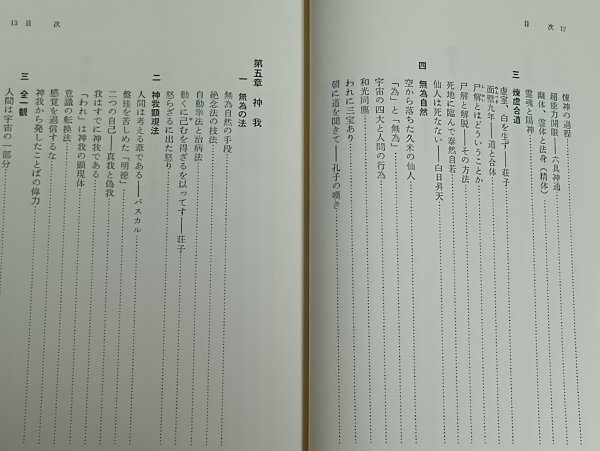 目次 12
煉神の過程
超能力開眼——六具神通
幽体、霊体と法身〈精体〉
霊魂と陽神
三 煉虚合道
虚室、白を生ず——荘子
面壁九年——道と合体
尸解とはどういうことか
尸解と解脱——その方法
死地に臨んで泰然自若
仙人は死なない——白日昇天
四 無為自然
空から落ちた久米の仙人
「為」と「無為」
宇宙の四大と人間の行為
和光同塵
われに三宝あり
朝に道を聞きて——孔子の嘆き
13 目次
第五章 神我
一 無為の法
無為自然の手段
絶念法の技法
自動拳法と治病法
動くに已むを得ざるを以ってす——荘子
怒らざるに出た怒り
二 神我顕現法
人間は考える葦である——パスカル
盤珪を苦しめた「明徳」
二つの自己——真我と偽我
我はすでに神我である
「われ」は神我の顕現体
意識の転換法
感覚を過信するな
神我から発したことばの偉力
三 全一観
人間は宇宙の一部分